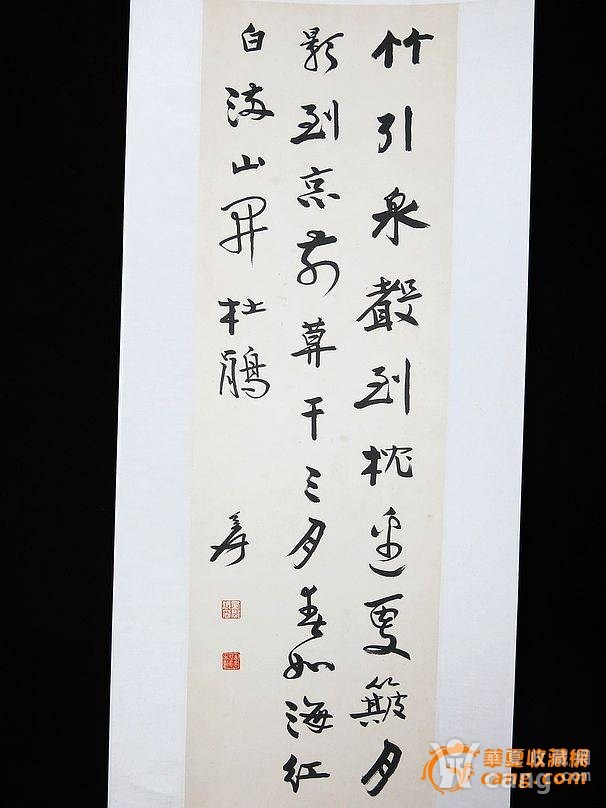 竹引泉聲到枕邊更簸月
影到窓前莫干三月春如海紅
白滿山開杜鵑
爰
華夏收藏網
cang.com